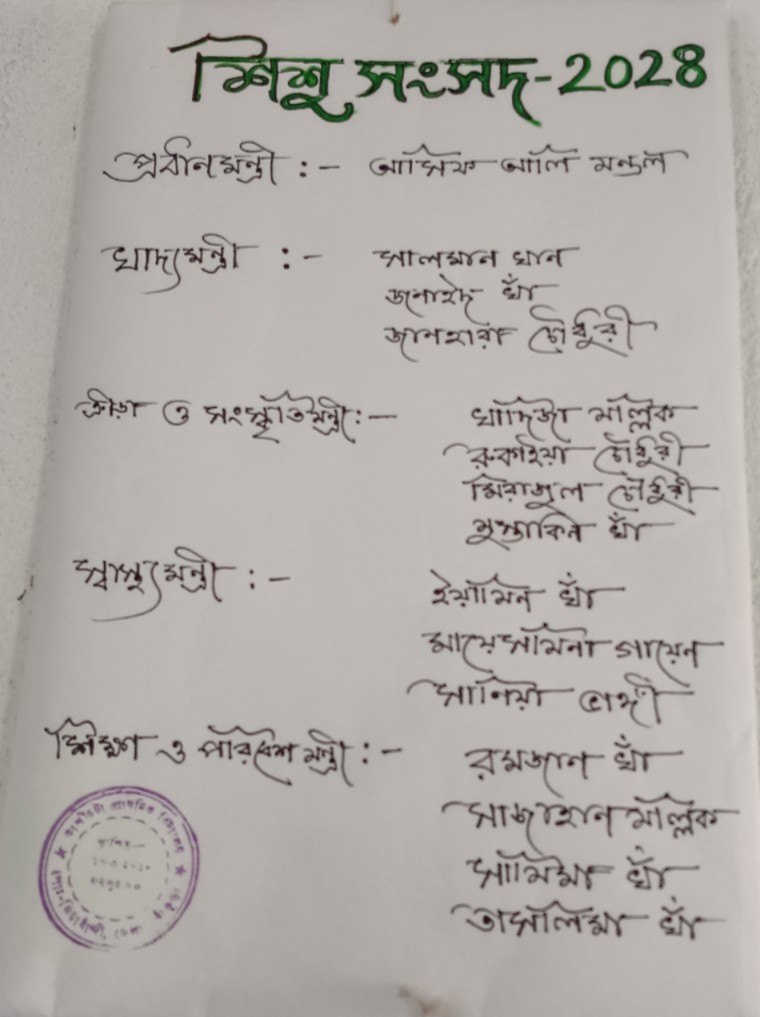 শিশু সংসদ-2028
প্রধানমন্ত্রী :- আসিফ আলি মন্ডল
খাদ্যমন্ত্রী :- সালমান খান
জুনাইদ খাঁ
জানহারা চৌধুরী
ক্রীড়া ও সংস্কৃতিমন্ত্রী:- খাদিজা মল্লিক
রুকাইয়া চৌধুরী
মিরাজুল চৌধুরী
মুস্তাকিন খাঁ
স্বাস্থ্যমন্ত্রী :- ইয়ামিন খাঁ
মায়েসামিনা গায়েন
সানিয়া ভাঙ্গী
শিক্ষা ও পরিবেশ মন্ত্রী :- রমজান খাঁ
সাজাহান মল্লিক
সামিমা খাঁ
তাসলিমা খাঁ